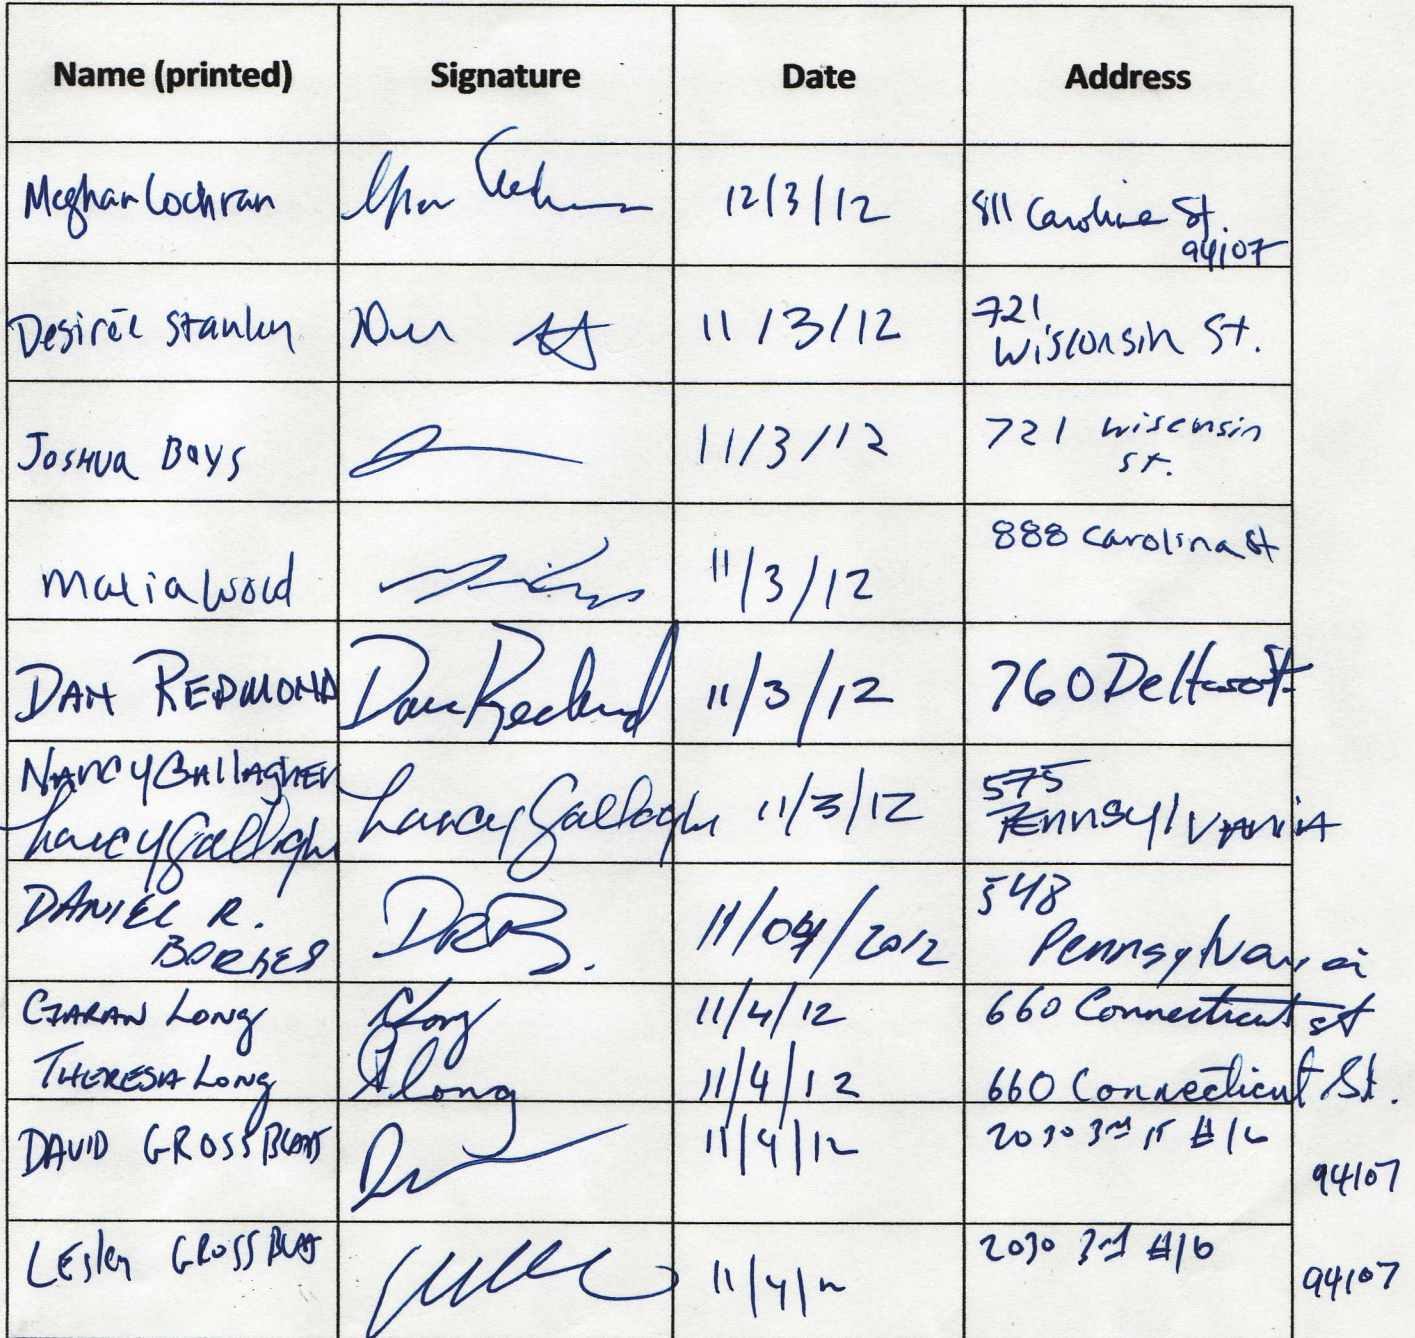 Name (printed) Signature Date Address
Meghan Lochran 12/3/12 811 Caroline St.
94107
Desirée Stanley 11/3/12 721
Wisconsin St.
Joshua Bays 11/3/12 721 wisconsin
st.
Malia Wold 11/3/12 888 Carolina St
DAN REDMOND Dan Redmond 11/3/12 760 De St
NANCY GALLAGHER
Nancy Gallagher Nancy Gallagher 11/3/12 575
Pennsylvania
DANIEL R.
BORGES DRB. 11/04/2012 548
Pennsylvania
CIARAN LONG CLong 11/4/12 660 Connecticut st
THERESA LONG TLong 11/4/12 660 Connecticut St.
DAVID GROSSBLATT 11/4/12 2030 3rd St #16
94107
Lesley GROSSBLATT 11/4/12 2030 3rd #16
94107